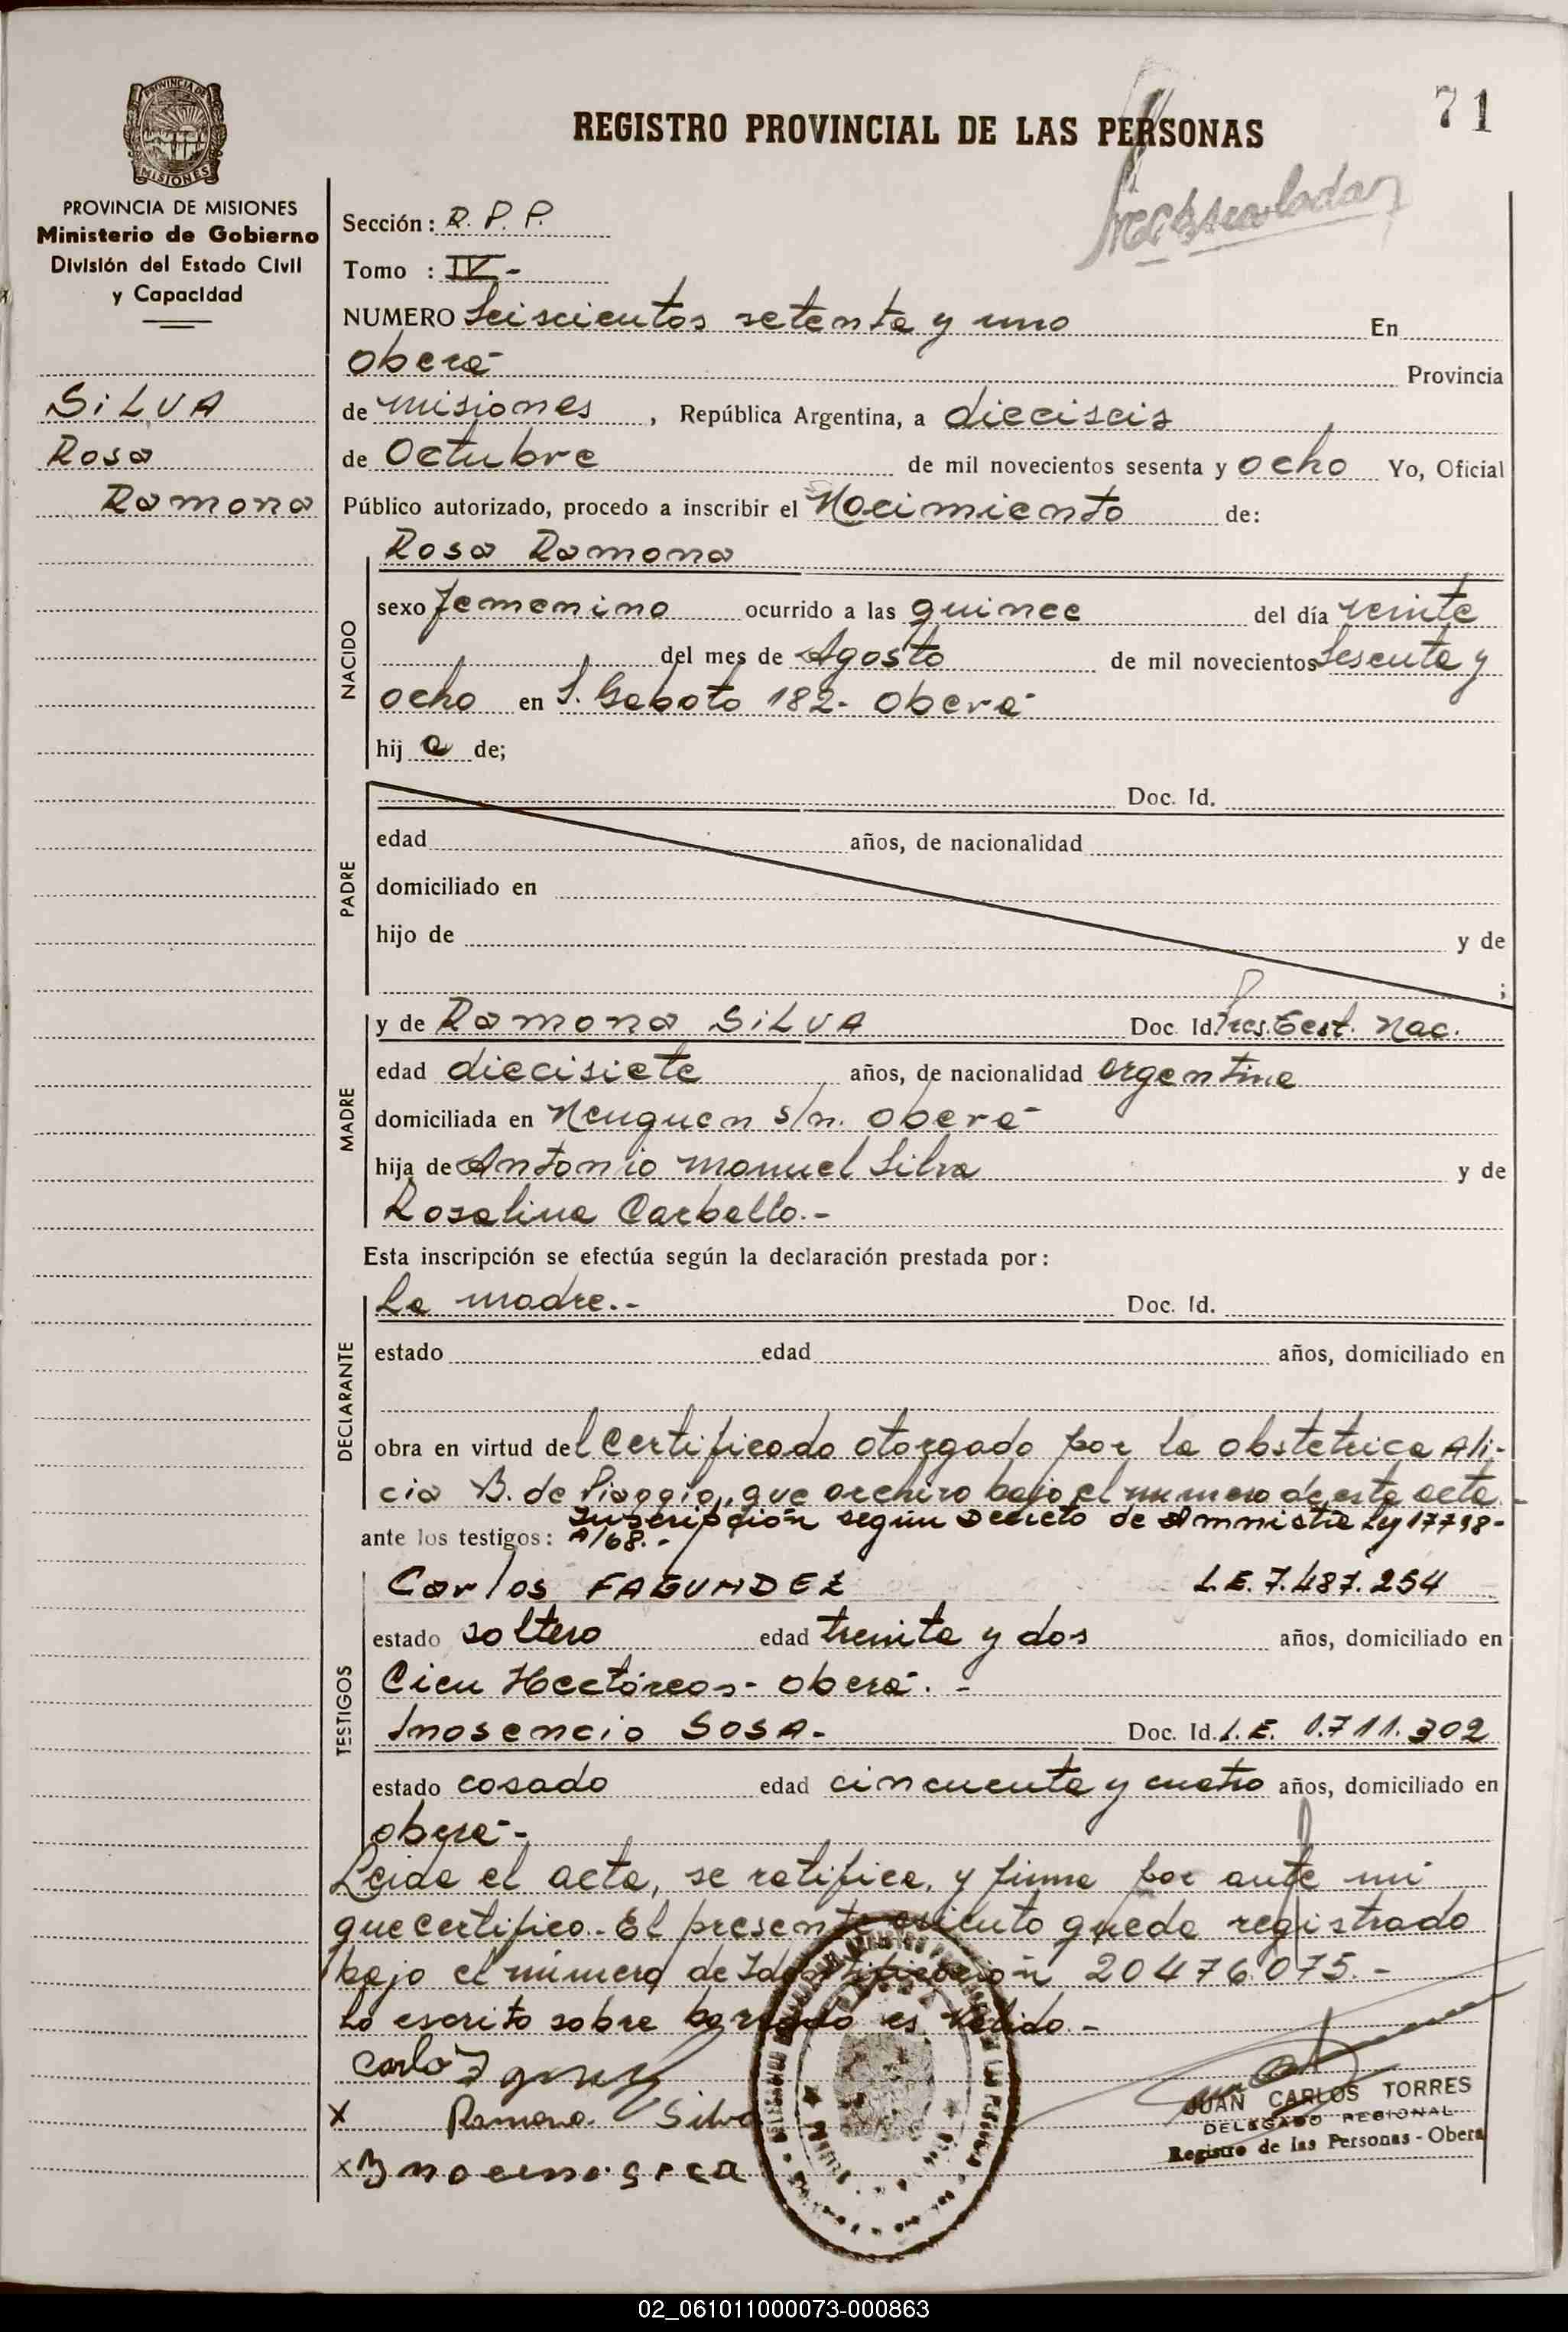 71
REGISTRO PROVINCIAL DE LAS PERSONAS
PROVINCIA DE
MISIONES
PROVINCIA DE MISIONES
Ministerio de Gobierno
División del Estado Civil
y Capacidad
SILVA
Rosa
Ramona
Sección: R. P. P.
Tomo : IV -
NUMERO Seiscientos setenta y uno En
Oberá Provincia
de Misiones, República Argentina, a dieciseis
de Octubre de mil novecientos sesenta y ocho Yo, Oficial
Público autorizado, procedo a inscribir el Nacimiento de:
NACIDO
Rosa Ramona
sexo femenino ocurrido a las quince del día veinte
del mes de Agosto de mil novecientos sesenta y
ocho en S. Gaboto 182- Oberá
hij a de;
PADRE
Doc. Id.
edad años, de nacionalidad
domiciliado en
hijo de y de
;
MADRE
y de Ramona SILVA Doc. Id. Pres. Cert. Nac.
edad diecisiete años, de nacionalidad argentina
domiciliada en Neuquen s/n. Oberá
hija de Antonio Manuel Silva y de
Rosalina Carballo.-
Esta inscripción se efectúa según la declaración prestada por:
DECLARANTE
La madre.- Doc. Id.
estado edad años, domiciliado en
obra en virtud del Certificado otorgado por la obstetrica Ali-
cia B. de Piaggio, que archivo bajo el numero de esta acta.-
Inscripción segun Decreto de Amnistia Ley 17798-
ante los testigos: A/68.-
TESTIGOS
Carlos FAGUNDEZ L.E. 7.487.254
estado soltero edad treinta y dos años, domiciliado en
Cien Hectáreas- Oberá.-
Inosencio SOSA- Doc. Id. L.E. 1.711.302
estado casado edad cincuenta y cuatro años, domiciliado en
Oberá-
Leida el acta, se ratifica, y firma por ante mi
que certifico.- El presente asiento queda registrado
bajo el número de Identificación 20476075.-
Lo escrito sobre borrado es Valido.-
Carlo
X Ramona Silva
X
JUAN CARLOS TORRES
DELEGADO REGIONAL
Registro de las Personas - Obera
02_061011000073-000863